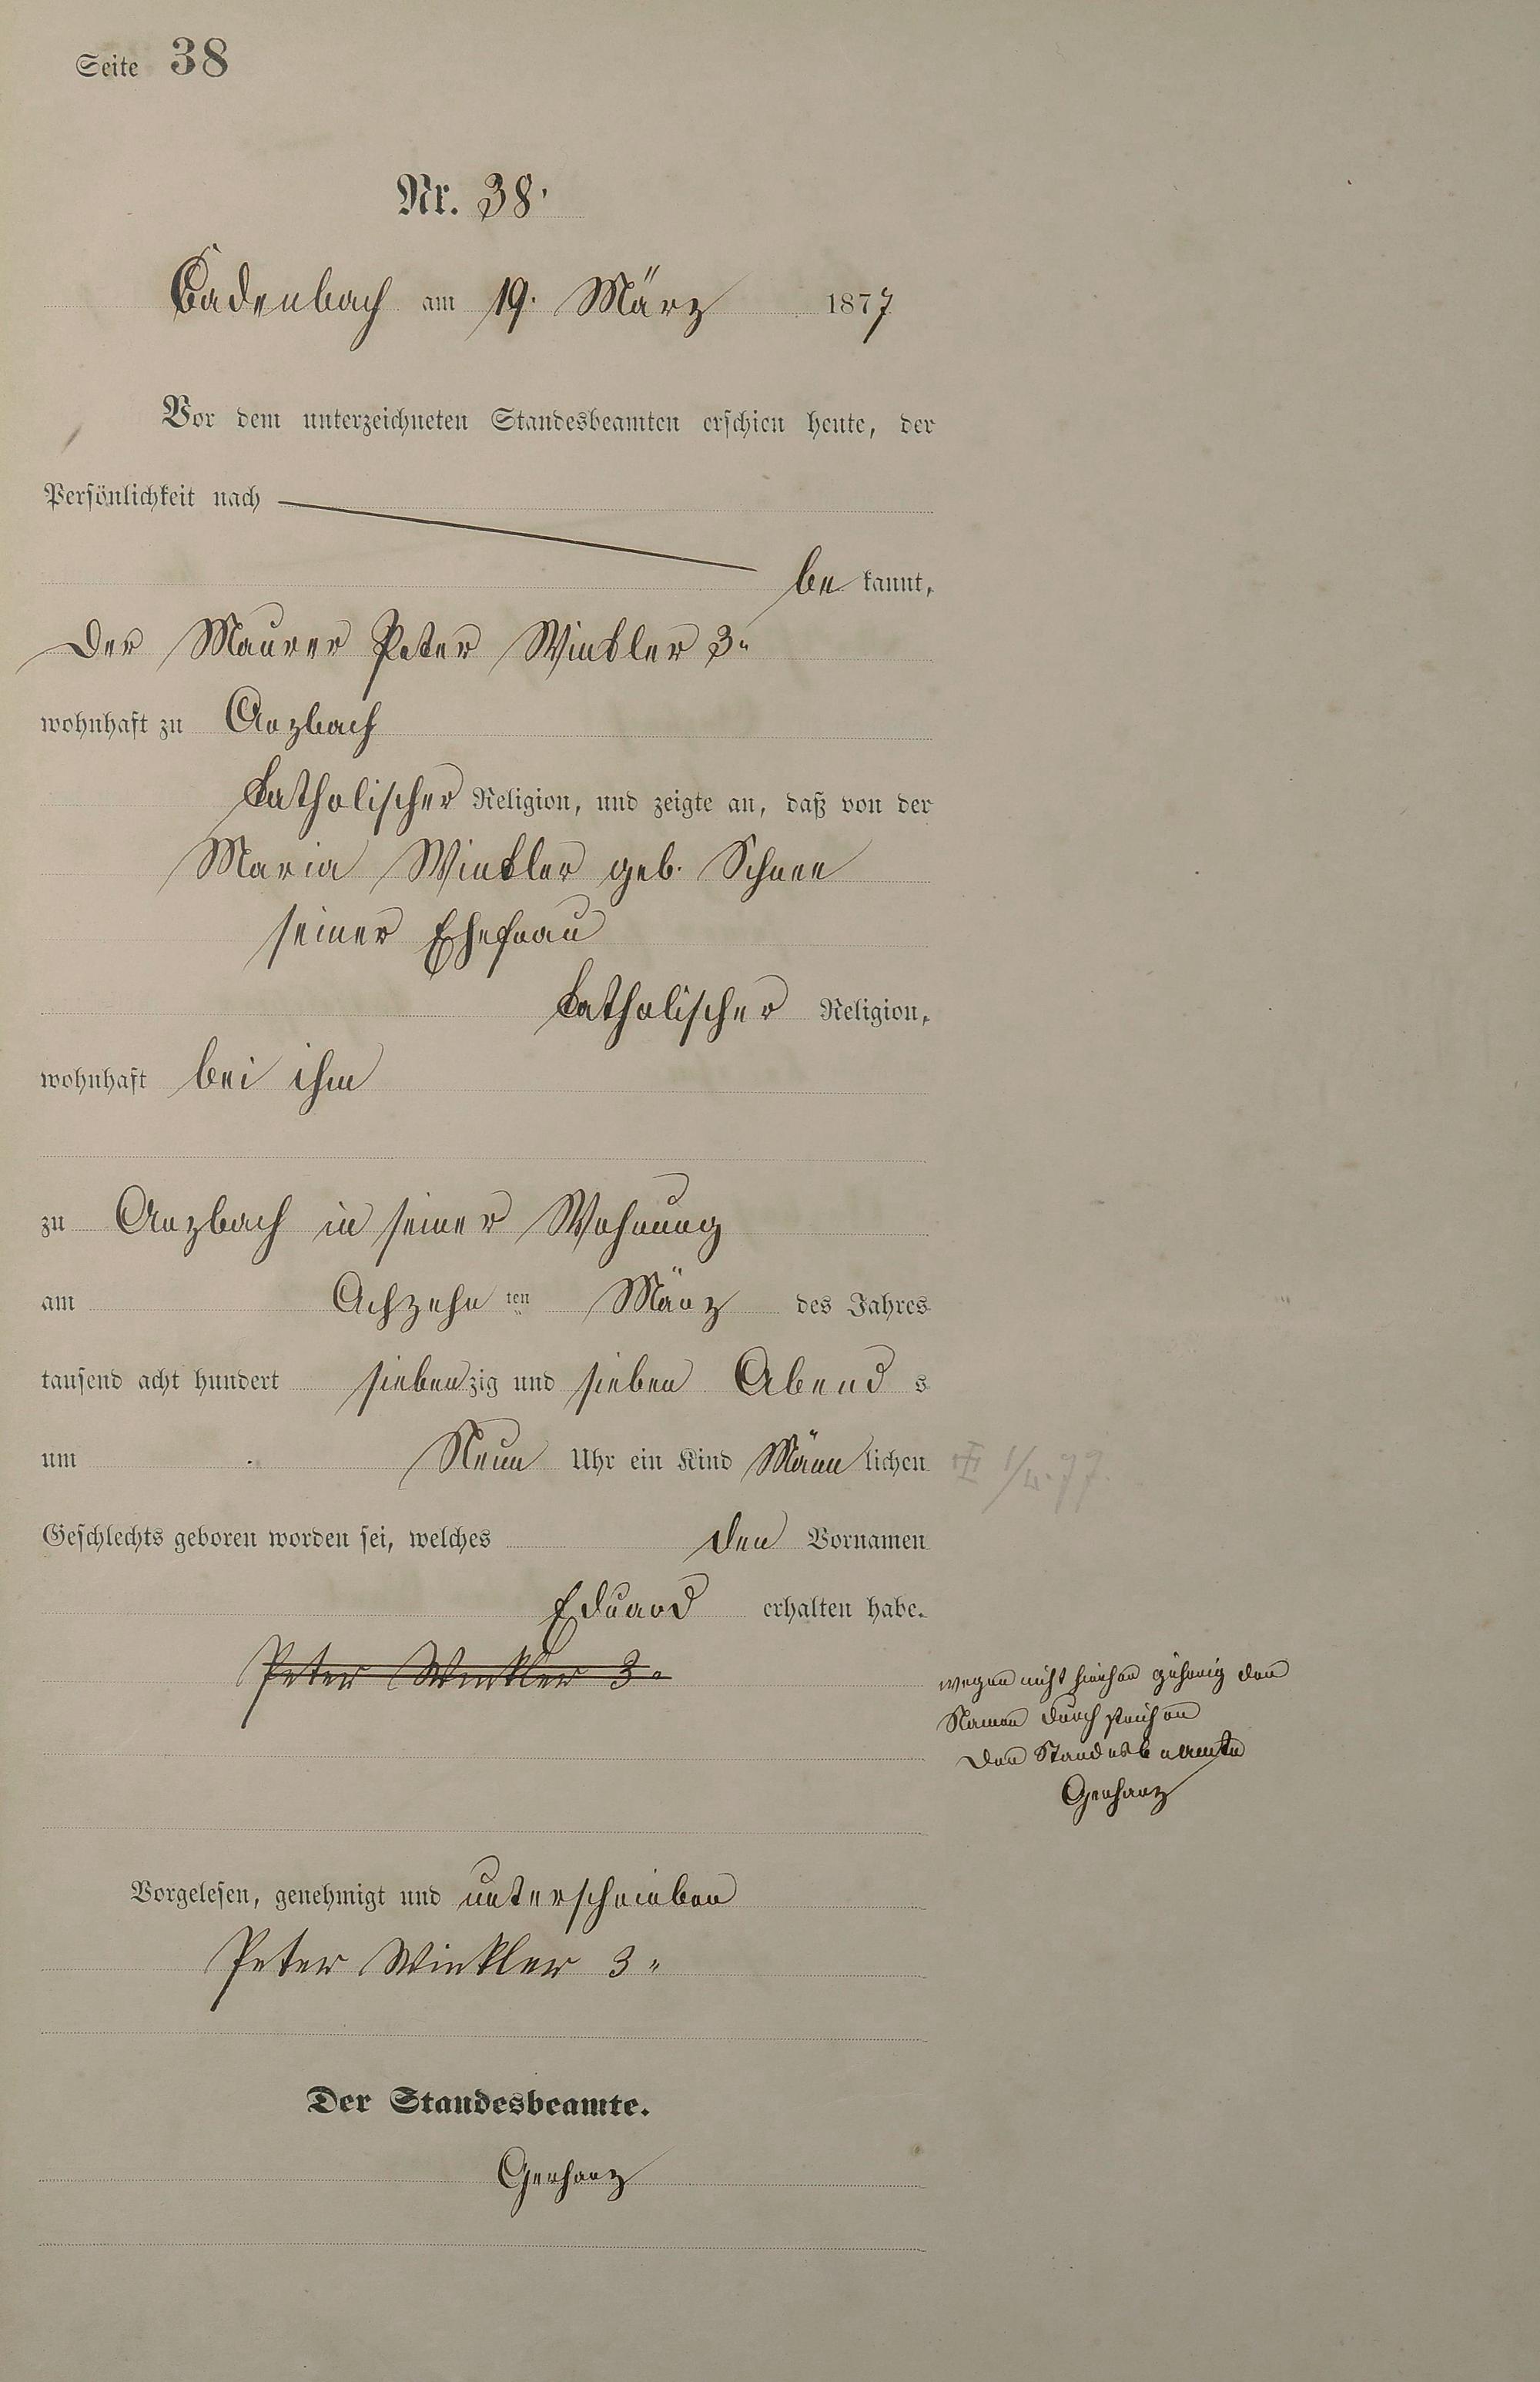 Seite 38
Nr. 38.
Cadenbach am 19. März 1877
Vor dem unterzeichneten Standesbeamten erschien heute, der
Persönlichkeit nach
be kannt,
Der Maurer Peter Winkler 3"
wohnhaft zu Arzbach
katholischer Religion, und zeigte an, daß von der
Maria Winkler geb. Schnee
seiner Ehefrau
katholischer Religion,
wohnhaft bei ihm
zu Arzbach in seiner Wohnung
am Achzehn ten März des Jahres
tausend acht hundert siebenzig und sieben Abend s
um Neun Uhr ein Kind Männ lichen
Geschlechts geboren worden sei, welches den Vornamen
Eduard erhalten habe.
Peter Winkler 3"
wegen nicht hierher gehörig den
Namen durchstrichen
Der Standesbeamte
Gerharz
Vorgelesen, genehmigt und unterschrieben
Peter Winkler 3"
Der Standesbeamte.
Gerharz